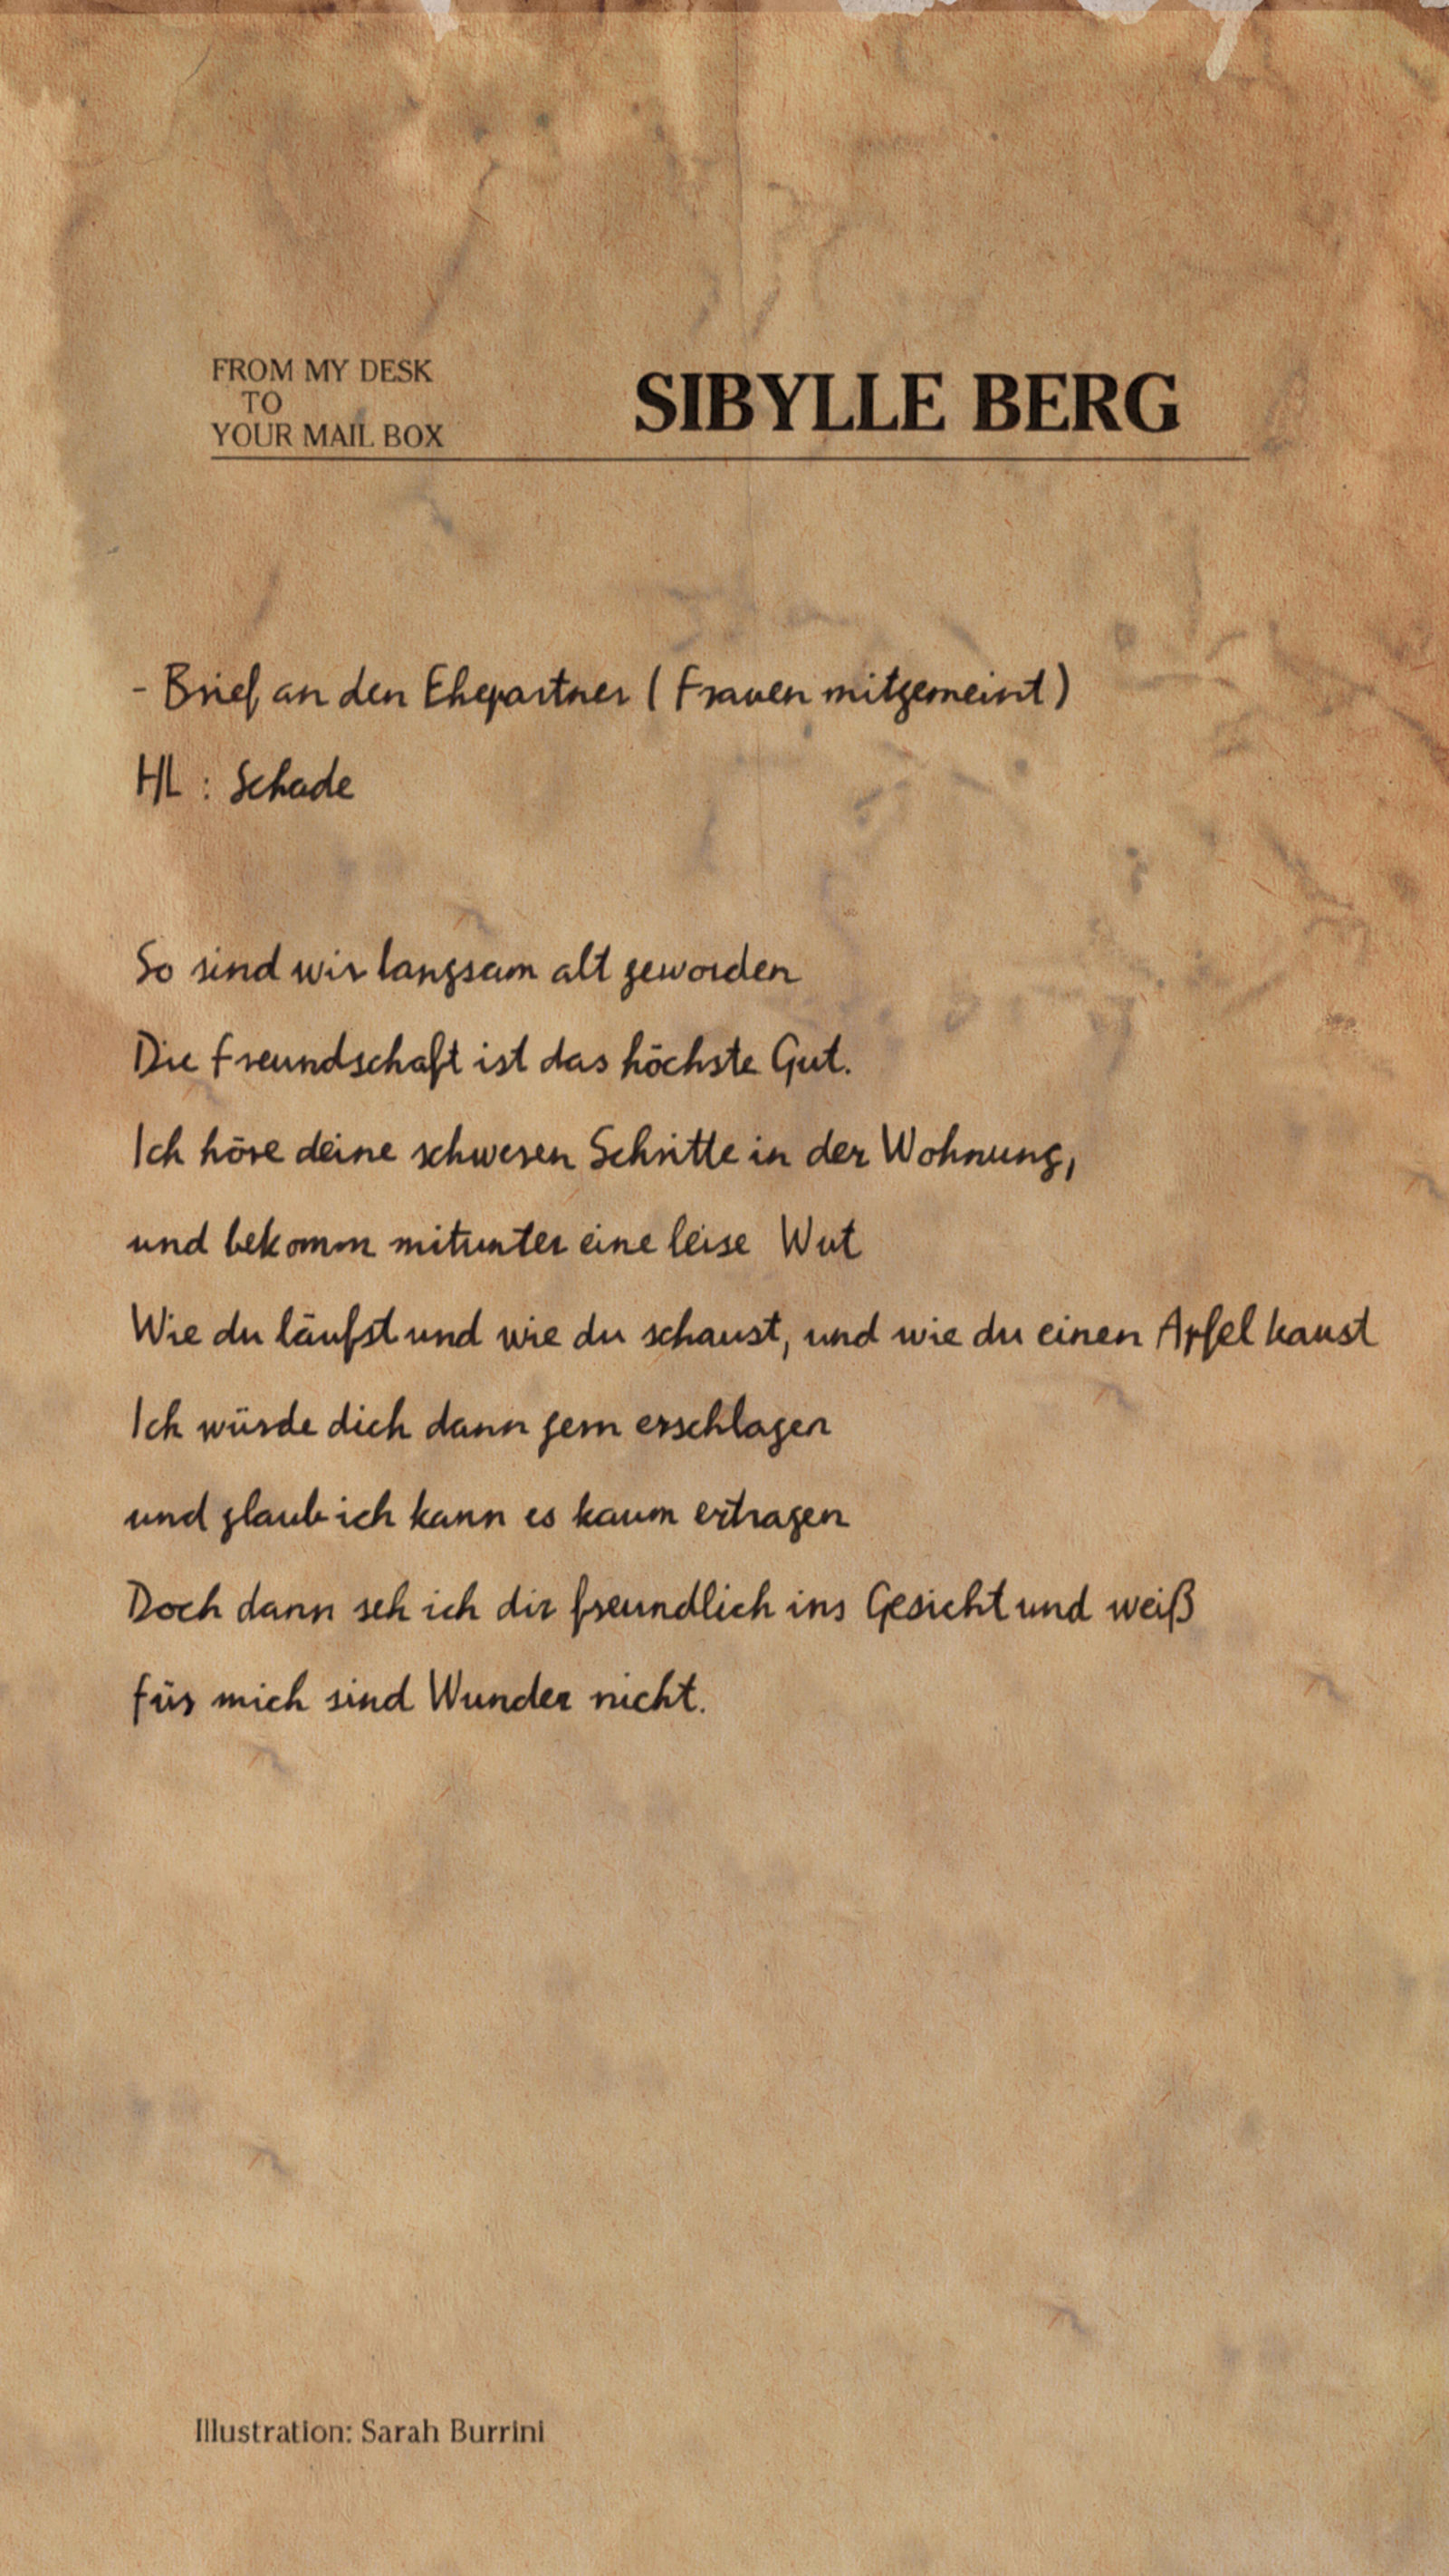 FROM MY DESK
TO
YOUR MAIL BOX
SIBYLLE BERG
- Brief an den Ehepartner (Frauen mitgemeint)
HL : Schade
So sind wir langsam alt geworden
Die Freundschaft ist das höchste Gut.
Ich höre deine schweren Schritte in der Wohnung,
und bekomm mitunter eine leise Wut
Wie du läufst und wie du schaust, und wie du einen Apfel kaust
Ich würde dich dann gern erschlagen
und glaub ich kann es kaum ertragen
Doch dann seh ich dir freundlich ins Gesicht und weiß
für mich sind Wunder nicht.
Illustration: Sarah Burrini